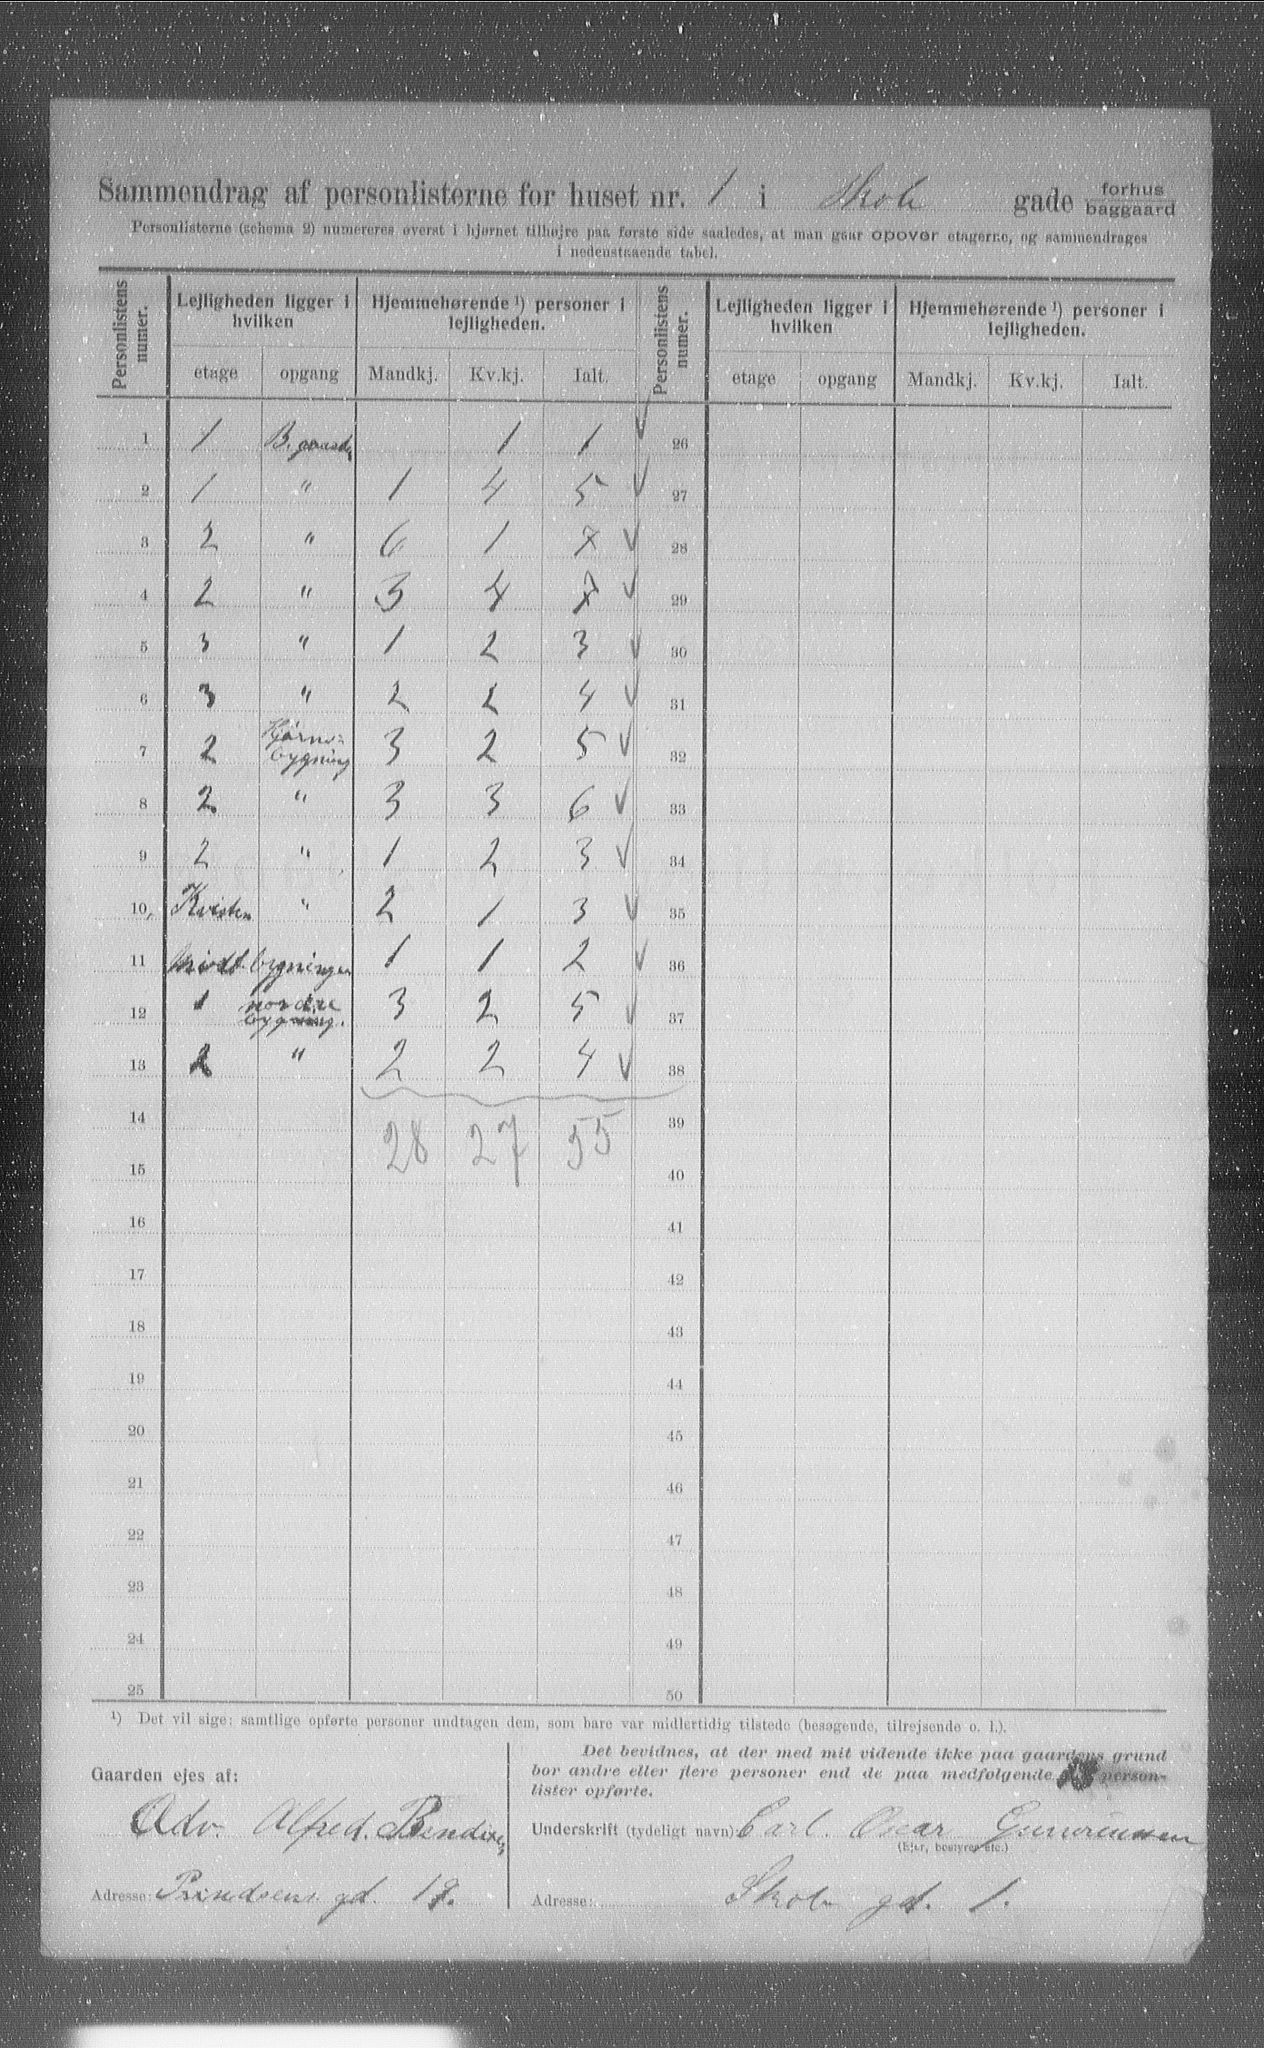 Sammendrag af personlisterne for huset nr. 1 i Skole gade forhus
baggaard
Personlisterne (schema 2) numereres øverst i hjørnet tilhøjre paa første side saaledes, at man gaar opover etagerne, og sammendrages
i nedenstaaende tabel.
Personlistens numer. Lejligheden ligger i hvilken Hjemmehørende ¹) personer i lejligheden. Personlistens numer. Lejligheden ligger i hvilken Hjemmehørende ¹) personer i lejligheden.
etage opgang Mandkj. Kv.kj. Ialt. etage opgang Mandkj. Kv.kj. Ialt.
1 1 B. gaarden 1 1 ✓ 26
2 1 " 1 4 5 ✓ 27
3 2 " 6 1 7 ✓ 28
4 2 " 3 4 7 ✓ 29
5 3 " 1 2 3 ✓ 30
6 3 " 2 2 4 ✓ 31
7 2 Hjørne-
bygning 3 2 5 ✓ 32
8 2 " 3 3 6 ✓ 33
9 2 " 1 2 3 ✓ 34
10 Kvisten " 2 1 3 ✓ 35
11 Midtbygningen 1 1 2 ✓ 36
12 1 nordre
bygning. 3 2 5 ✓ 37
13 2 " 2 2 4 ✓ 38
14 28 27 55 39
15 40
16 41
17 42
18 43
19 44
20 45
21 46
22 47
23 48
24 49
25 50
¹) Det vil sige: samtlige opførte personer undtagen dem, som bare var midlertidig tilstede (besøgende, tilrejsende o. l.).
Gaarden ejes af:
Adv. Alfred. Bendixen
Adresse: Prindsens gd. 19.
Det bevidnes, at der med mit vidende ikke paa gaardens grund
bor andre eller flere personer end de paa medfølgende person-
lister opførte.
Underskrift (tydeligt navn) Carl. Oscar
(Ejer, bestyrer etc.)
Adresse: Skole gd. 1.